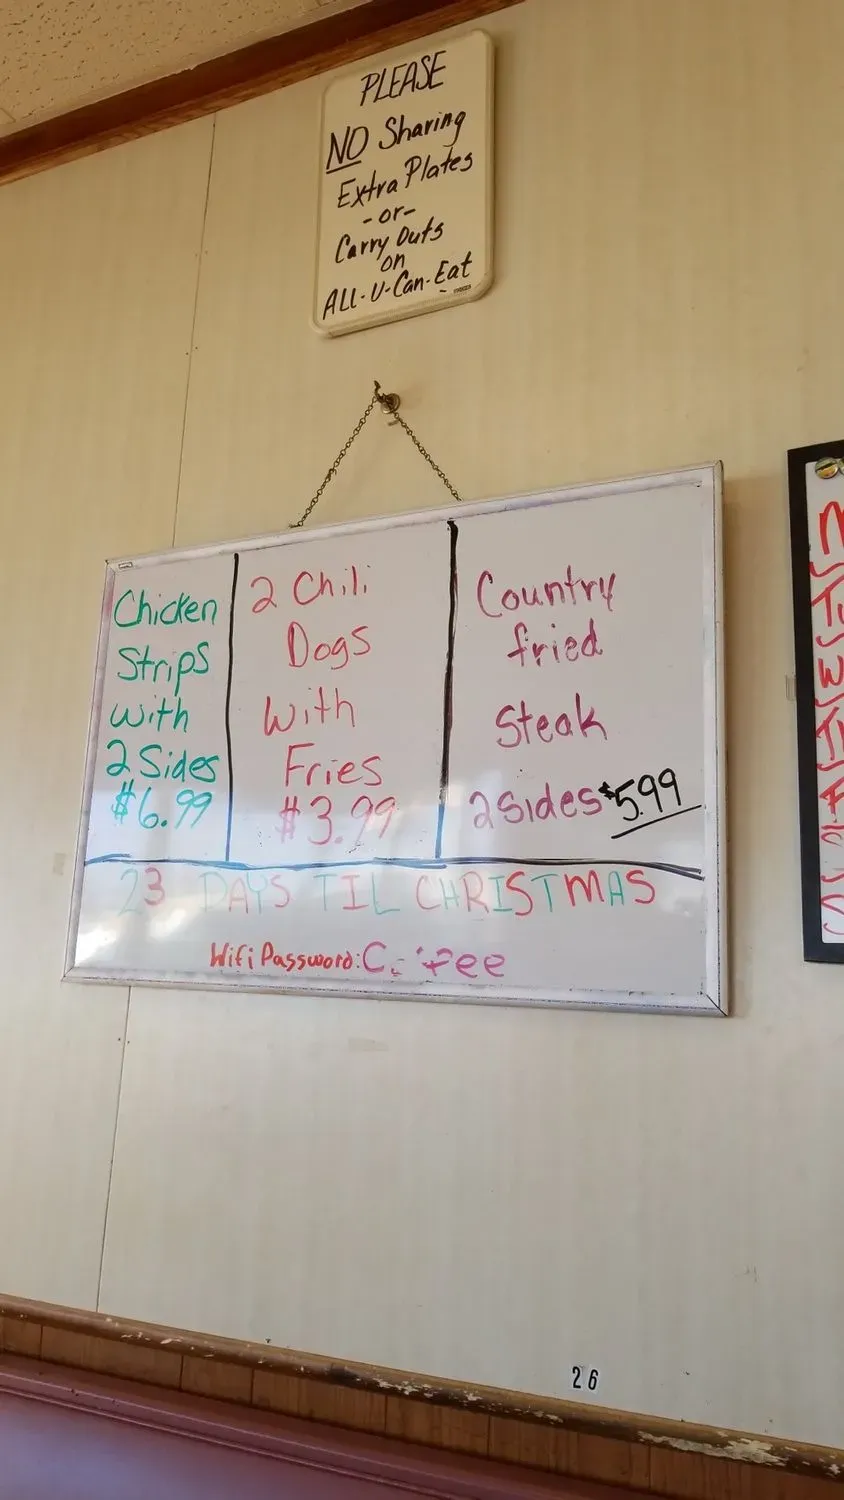 PLEASE
NO Sharing
Extra Plates
-or-
Carry Outs
on
ALL-U-Can-Eat
Chicken
Strips
with
2 Sides
$6.99
2 Chili
Dogs
With
Fries
$3.99
Country
fried
Steak
2 Sides $5.99
23 DAYS TIL CHRISTMAS
Wifi Password:
26